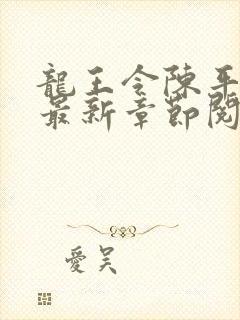 龍王令陳平
最新章節閱
愛吴